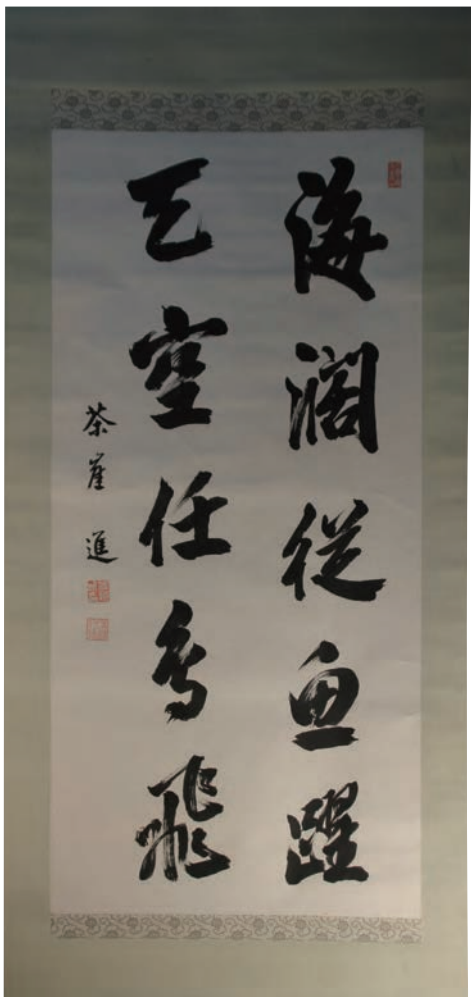 海濶従魚躍
天空任鳥飛
茶崖 進